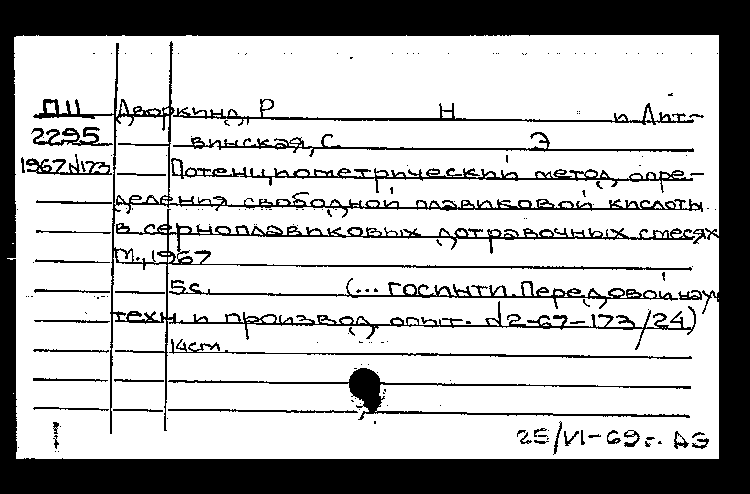 П11 Дворкинд, Р Н и Лит-
2295 винская, С. Э
1967 N173 Потенциометрический метод опре-
деления свободной плавиковой кислоты
в серноплавиковых дотравочных смесях
М., 1967
5с. (... ГОСИНТИ. Передовой науч
техн. и производ. опыт. N2-67-173/24)
14см.
25/VI-69г. АЭ